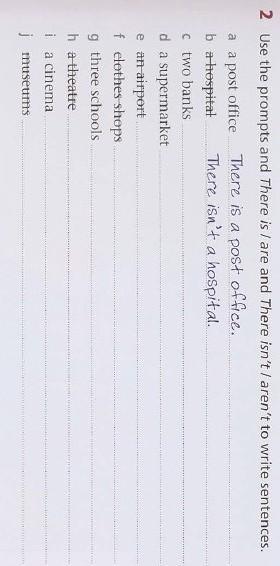 2 Use the prompts and There is / are and There isn't / aren't to write sentences.
a a post office There is a post office.
b a hospital There isn't a hospital.
c two banks
d a supermarket
e an airport
f clothes shops
g three schools
h a theatre
i a cinema
j museums